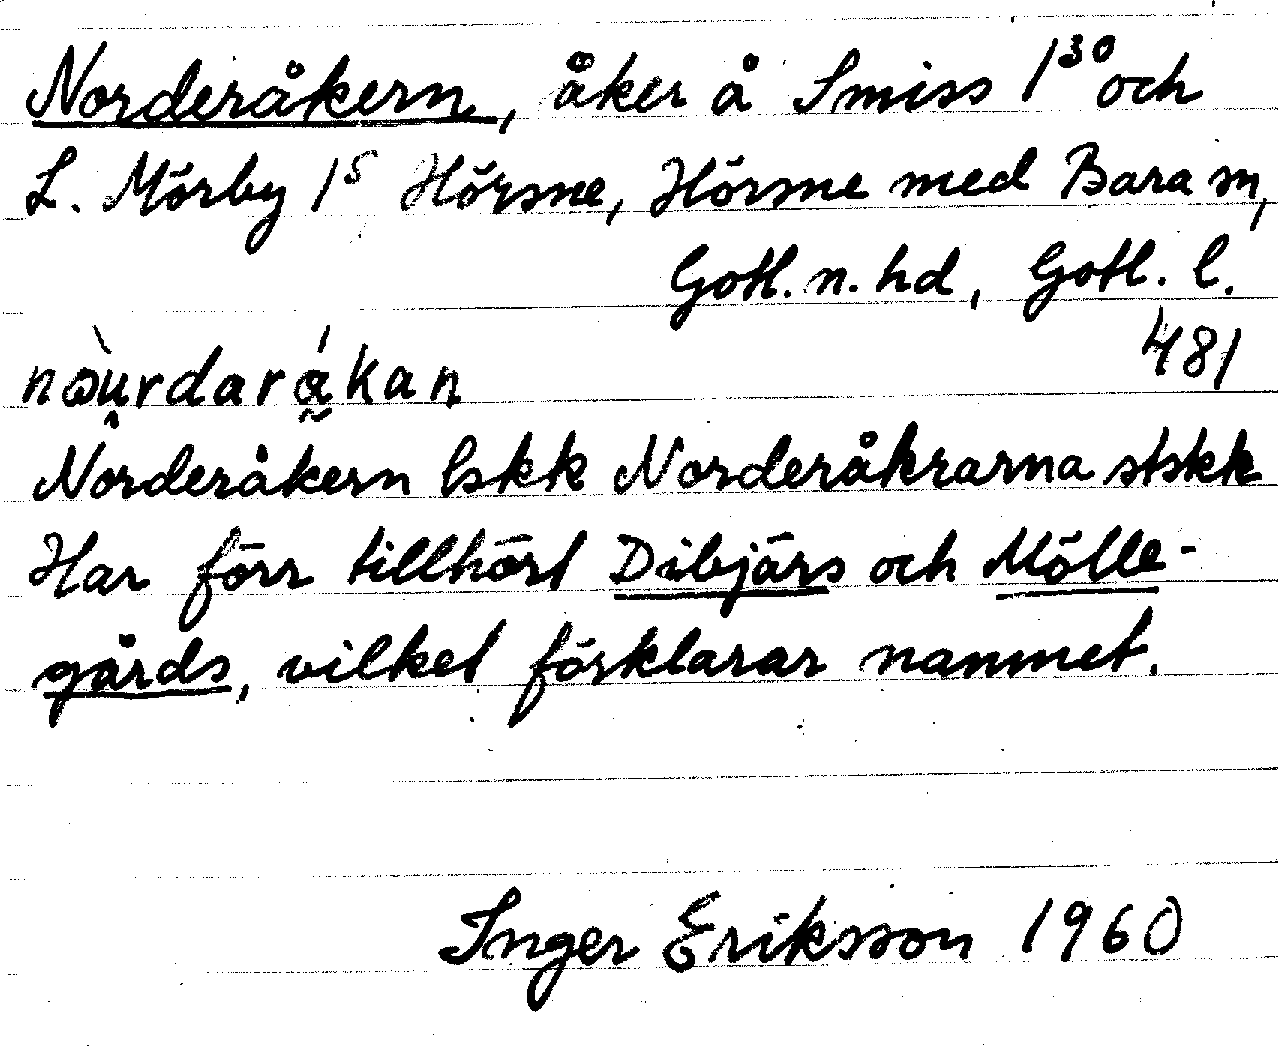 Norderåkern, åker å Smiss 1³⁰ och
L. Mörby 1ˢ Hörsne, Hörsne med Bara sn,
Gotl. n. hd, Gotl. l.
481
Norderåkern lskk Norderåkrarna stskk
Har förr tillhört Dibjärs och Mölle-
gårds, vilket förklarar namnet.
Inger Eriksson 1960